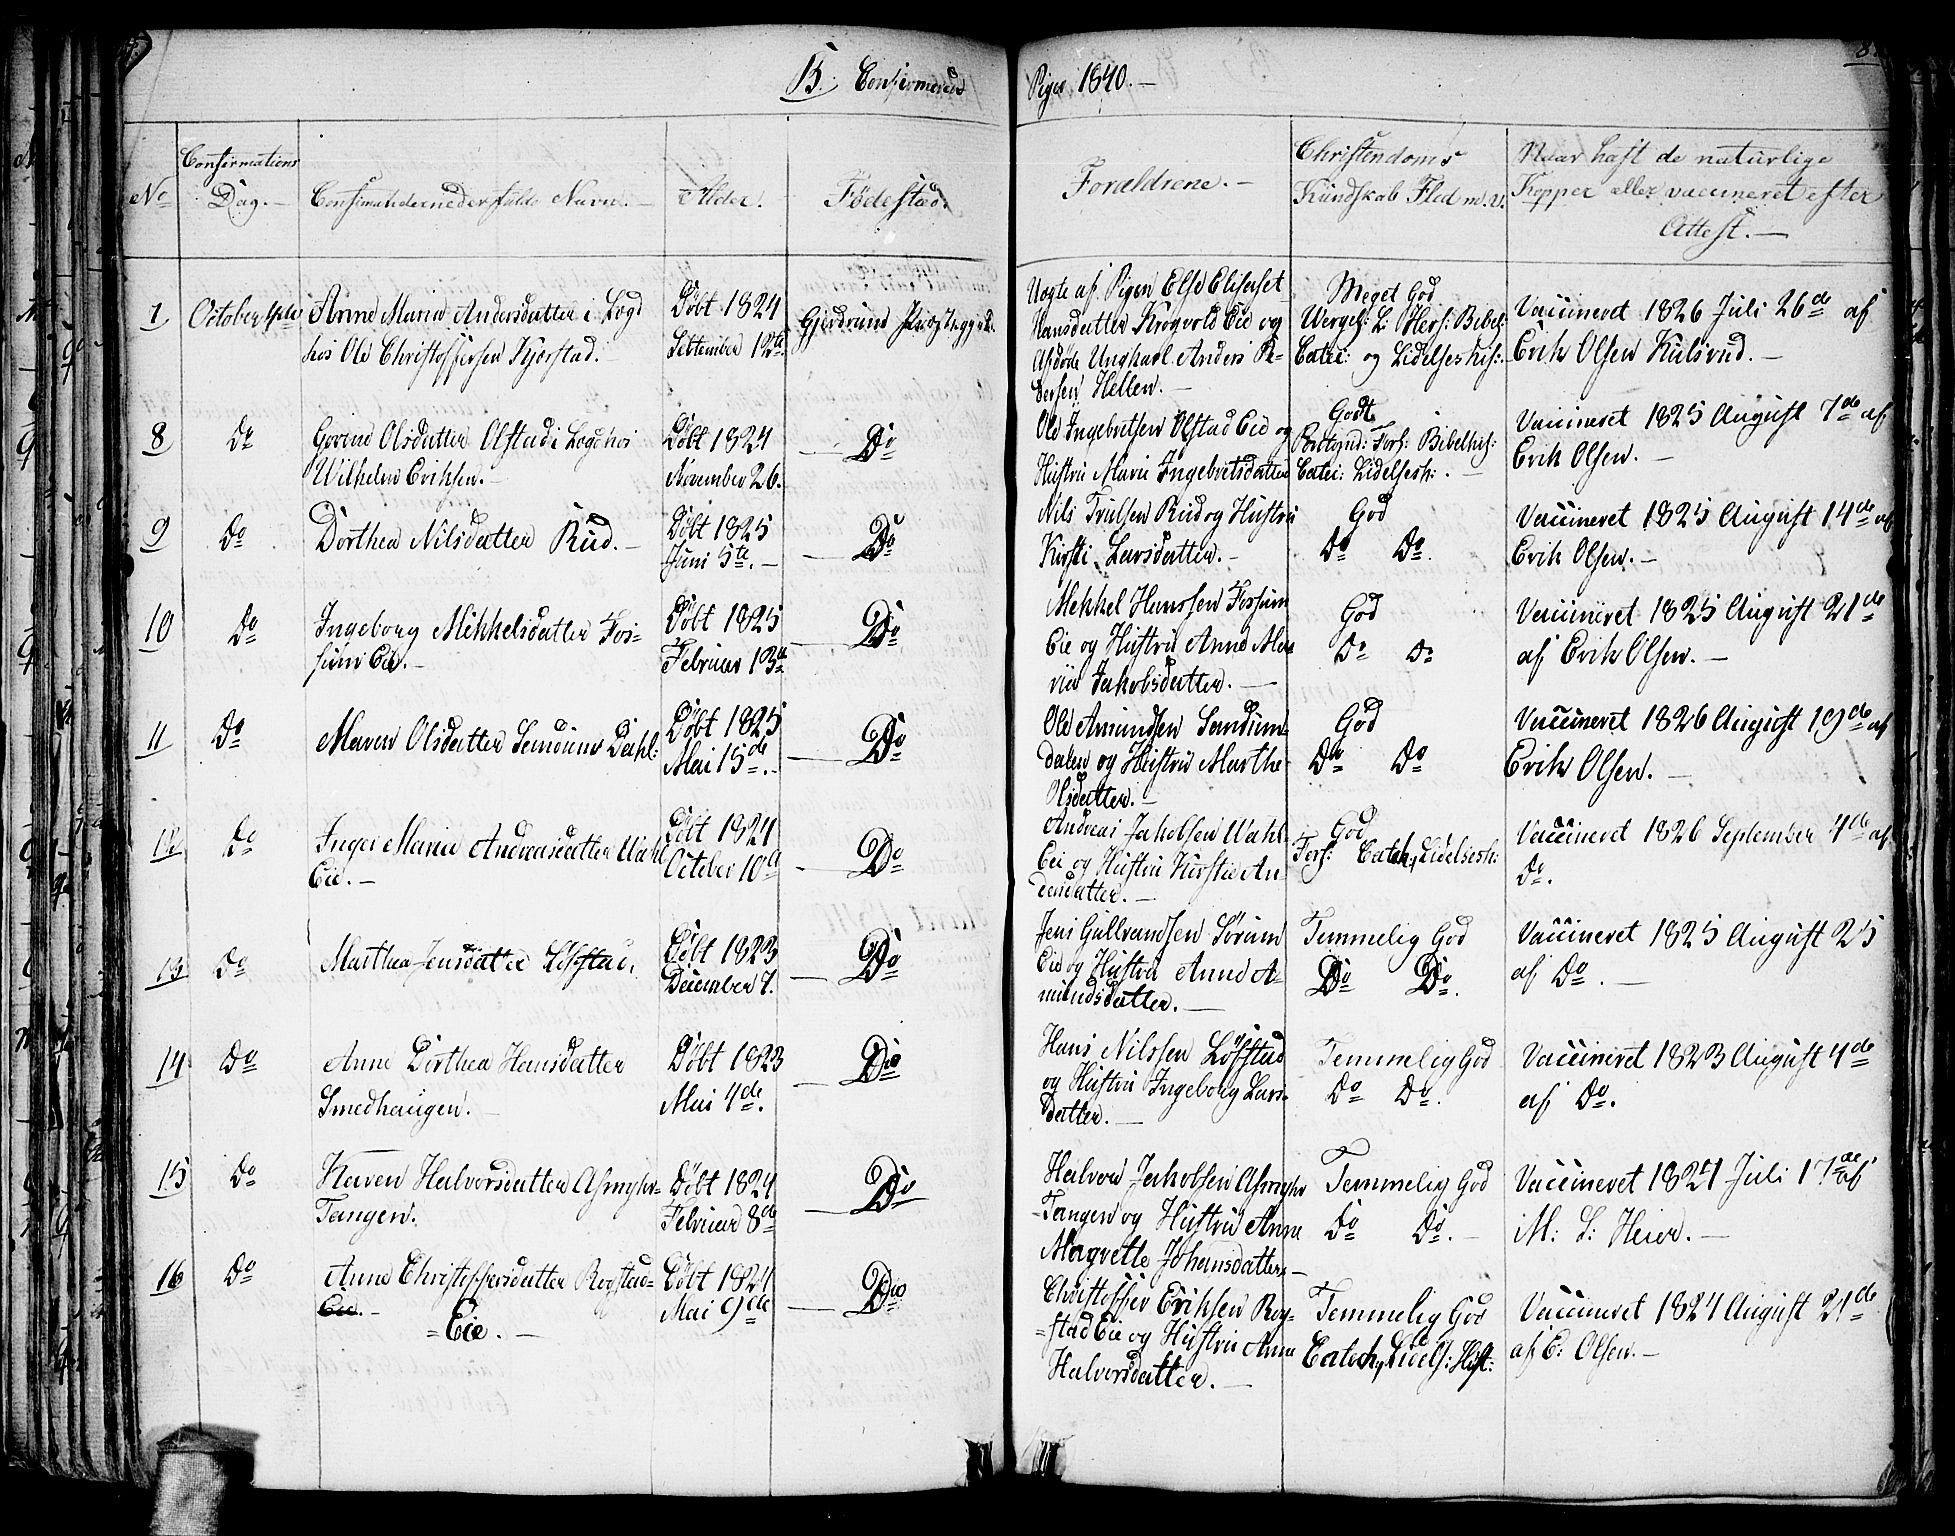 B. Confirmerede
Piger 1840.-
No
Confirmations
Dag.-
Confirmandernes fulde Navn.-
Alder.
Fødestad.
Forældrene.-
Christendoms
Kundskab Flid m.v.
Naar haft de naturlige
Kopper eller vaccineret efter
Attest.-
7
October 4de
Anne Maria Andersdatter i Lægd
hos Ole Christoffersen Kjorstad.
Døbt 1824
September 12te
Gjerdrums Præstegjeld.
Uægte af Pigen Else Elisabet
Hansdatter Krogvold Eie og
Afdøde Ungkarl Anders Pe-
dersen Hellen.-
Meget God
Wergel: L: Hers: Bibel
Catec: og Lidelseshis:
Vaccineret 1826 Juli 26de af
Erik Olsen Kulsrud.-
8
Do
Olsdatter Olstad i Lægd hos
Wilhelm Eriksen.-
Døbt 1824
November 26.
Do
Ole Ingebretsen Olstad Eie og
Hustru Marie Ingebretsdatter
Godt
Fors: Bibelhis:
Catec: Lidelsesh:
Vaccineret 1825 August 7de af
Erik Olsen.-
9
Do
Dorthea Nilsdatter Rud.-
Døbt 1825
Juni 5te.-
Do
Nils Trulsen Rud og Hustru
Kirsti Larsdatter.-
God
Do Do.
Vaccineret 1825 August 14de af
Erik Olsen.-
10
Do
Ingeborg Mikkelsdatter Fos-
sum Eie.-
Døbt 1825
Februar 13de
Do
Mekkel Hanssen Fossum
Eie og Hustru Anne Ma-
ria Jakobsdatter.-
God
Do Do
Vaccineret 1825 August 21de
af Erik Olsen.-
11
Do
Maren Olsdatter Dahl.
Døbt 1825
Mai 15de.-
Do
Ole Amundsen
dalen og Hustru Marthe
Olsdatter.-
God
Do Do
Vaccineret 1826 August 19de af
Erik Olsen.-
12
Do
Inger Maria Andreasdatter Wahl
Eie.-
Døbt 1824
October 10de
Do
Andreas Jakobsen Wahl
Eie og Hustru Kirstie An-
dersdatter.-
God
Fors: Catech: Lidelsesh:
Vaccineret 1826 September 4de af
Do.
13
Do
Marthea Jensdatter
Døbt 1823
December 7.
Do
Jens Gulbrandsen Sørum
Eie og Hustru Anne A-
mundsdatter.-
Temmelig God
Do Do.
Vaccineret 1825 August 25
af Do.-
14
Do
Anne Dorthea Hansdatter
Smedhaugen.-
Døbt 1823
Mai 4de.
Do
Hans Nilssen Løfstad
og Hustru Ingeborg Lars-
datter.-
Temmelig God
Do Do.
Vaccineret 1823 August 4de
af Do.
15
Do
Maren Halvorsdatter Asmyhr-
Tangen.
Døbt 1824
Februar 8de
Do
Halvor Jakobsen Asmyhr
-Tangen og Hustru Anne
Margrette Johansdatter.-
Temmelig God
Do Do.-
Vaccineret 1824 Juli 17de af
M: S: Heier.-
16
Do
Anne Christoffersdatter Rogstad-
Eie.-
=Eie.-
Døbt 1824
Mai 9de
Do
Christoffer Eriksen Rog-
=stad Eie og Hustru Anne
Halvorsdatter.-
Temmelig God
Catech: Lidels: Hist:
Vaccineret 1824 August 21de
af E: Olsen.-